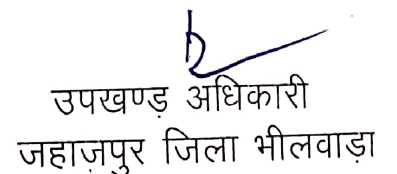 उपखण्ड़ अधिकारी
जहाज़पुर जिला भीलवाड़ा